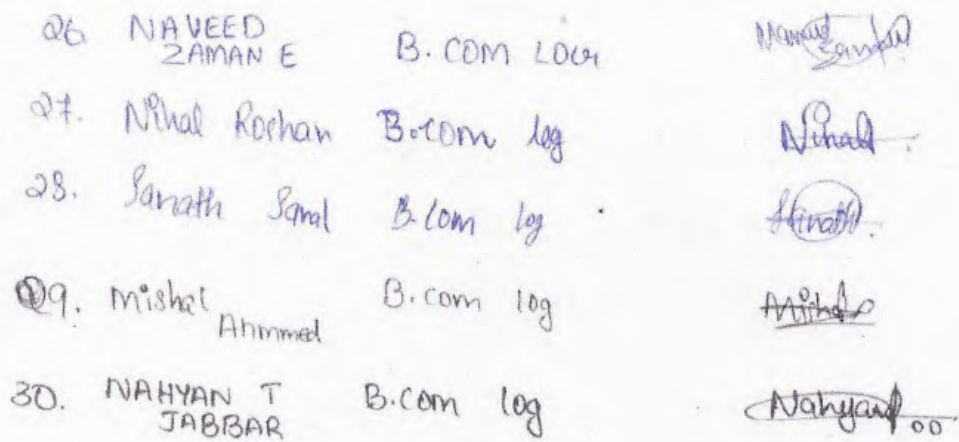 26. NAVEED ZAMAN E B.COM LOG Naveed Zaman
27. Nihal Roshan B.com log Nihal
28. Sanath Sanal B.Com log Sanath
29. Mishal Ahmmed B.com log Mishal
30. NAHYAN T JABBAR B.com log Nahyan